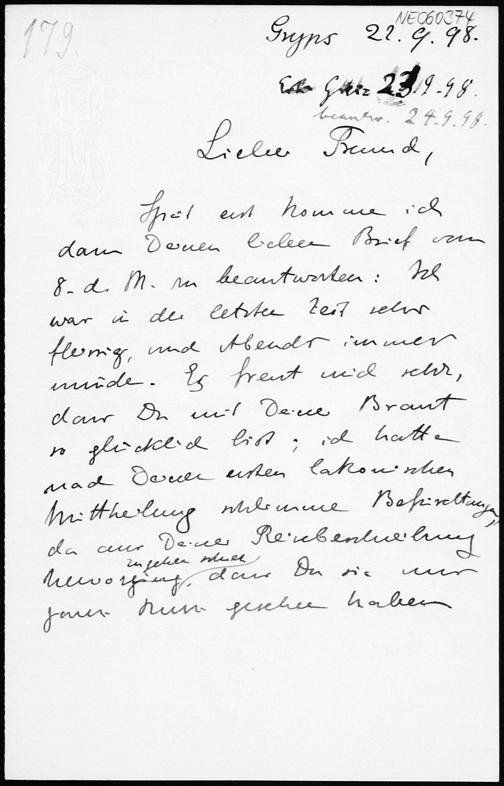 179.
NEC60374
Gryps 22.9.98.
Erh. Graz 23/9.98.
beantw. 24.9.98.
Lieber Freund,
Spät erst komme ich
dazu Deinen lieben Brief vom
8. d. M. zu beantworten: Ich
war in der letzten Zeit sehr
fleissig, und Abends immer
müde. Es freut mich sehr,
dass Du mit Deiner Braut
so glücklich bist; ich hatte
nach Deiner ersten lakonischen
Mittheilung schlimme Befürchtungen,
da aus Deiner Reisebeschreibung
zugehen schien
hervorging, dass Du sie nur
ganz kurz gesehen haben